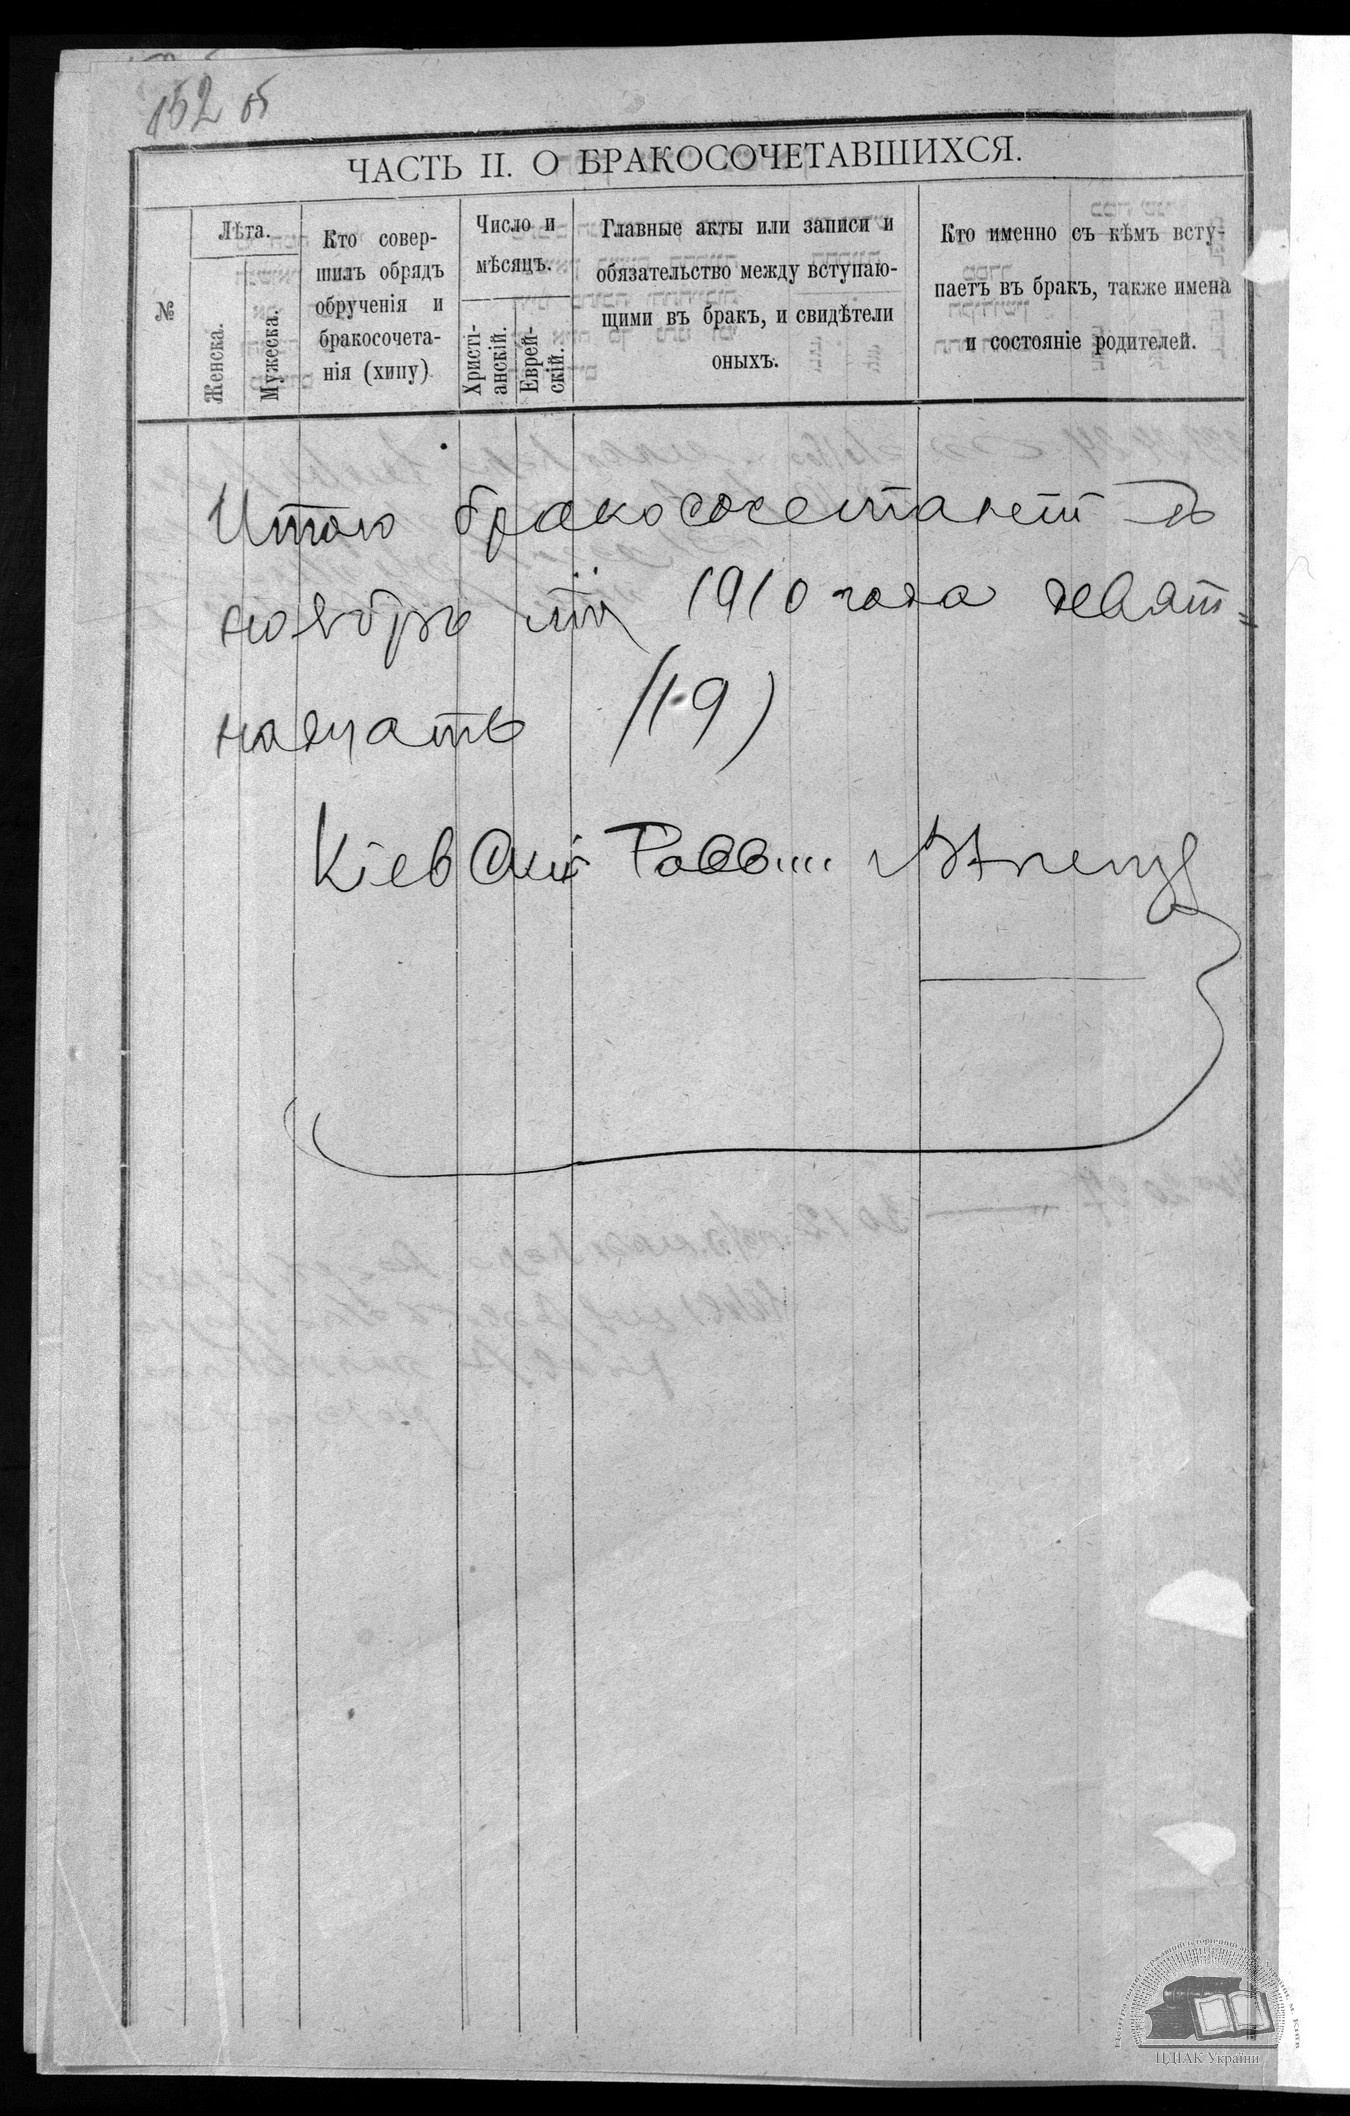 152 об
ЧАСТЬ II. О БРАКОСОЧЕТАВШИХСЯ.
№
Лѣта.
Женска.
Мужеска.
Кто совер-
шилъ обрядъ
обрученія и
бракосочета-
нія (хипу)
Число и
мѣсяцъ.
Христі-
анскій.
Еврей-
скій.
Главные акты или записи и
обязательство между вступаю-
щими въ бракъ, и свидѣтели
оныхъ.
Кто именно съ кѣмъ всту-
паетъ въ бракъ, также имена
и состояніе родителей.
Итого бракосочетаній въ
ноябрѣ 1910 года девят=
надцать (19)
Кіевскій Раввин
ЦДІАК України